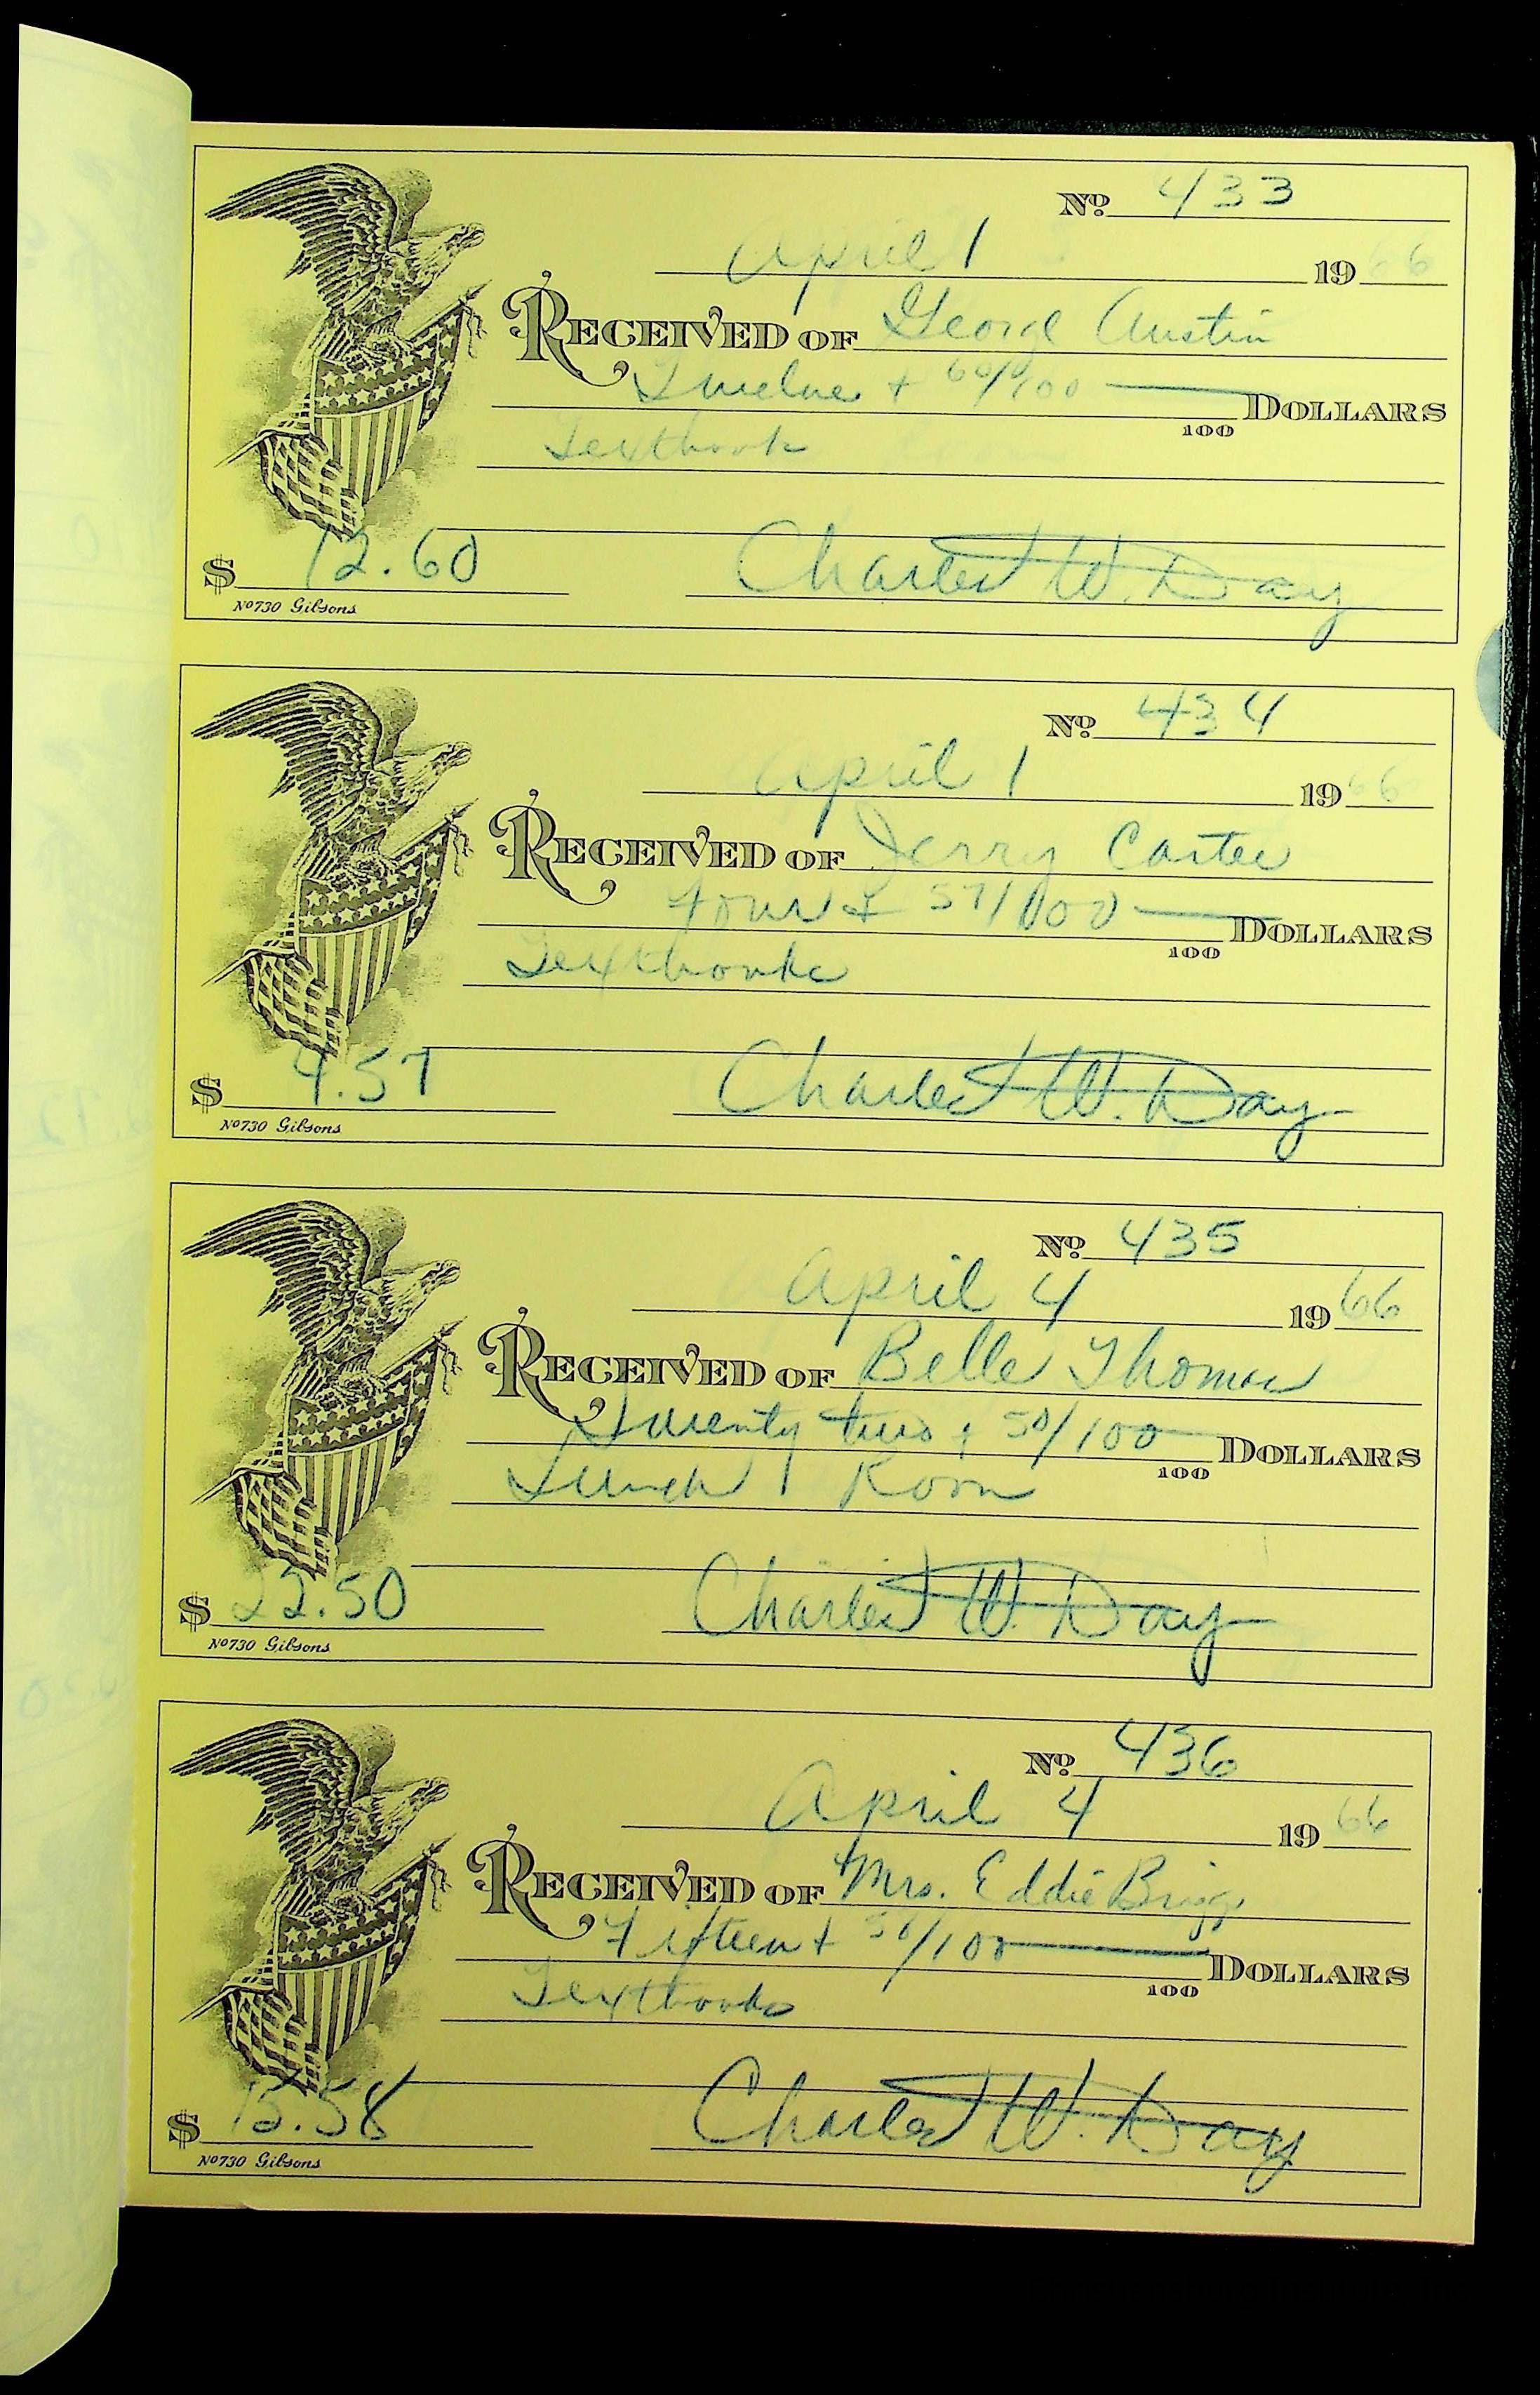 No. 433
April 1 1966
RECEIVED OF George Austin
Twelve + 60/100 DOLLARS
100
Textbook
$ 12.60 Charles W. Day
No 730 Gibsons
No. 434
April 1 1966
RECEIVED OF Jerry Carter
Four + 57/100 DOLLARS
100
Textbooks
$ 4.57 Charles W. Day
No 730 Gibsons
No. 435
April 4 1966
RECEIVED OF Belle Thomas
Twenty two + 50/100 DOLLARS
100
Lunch Room
$ 22.50 Charles W. Day
No 730 Gibsons
No. 436
April 4 1966
RECEIVED OF Mrs. Eddie Briggs
Fifteen + /100 DOLLARS
100
Textbooks
$ 15.58 Charles W. Day
No 730 Gibsons